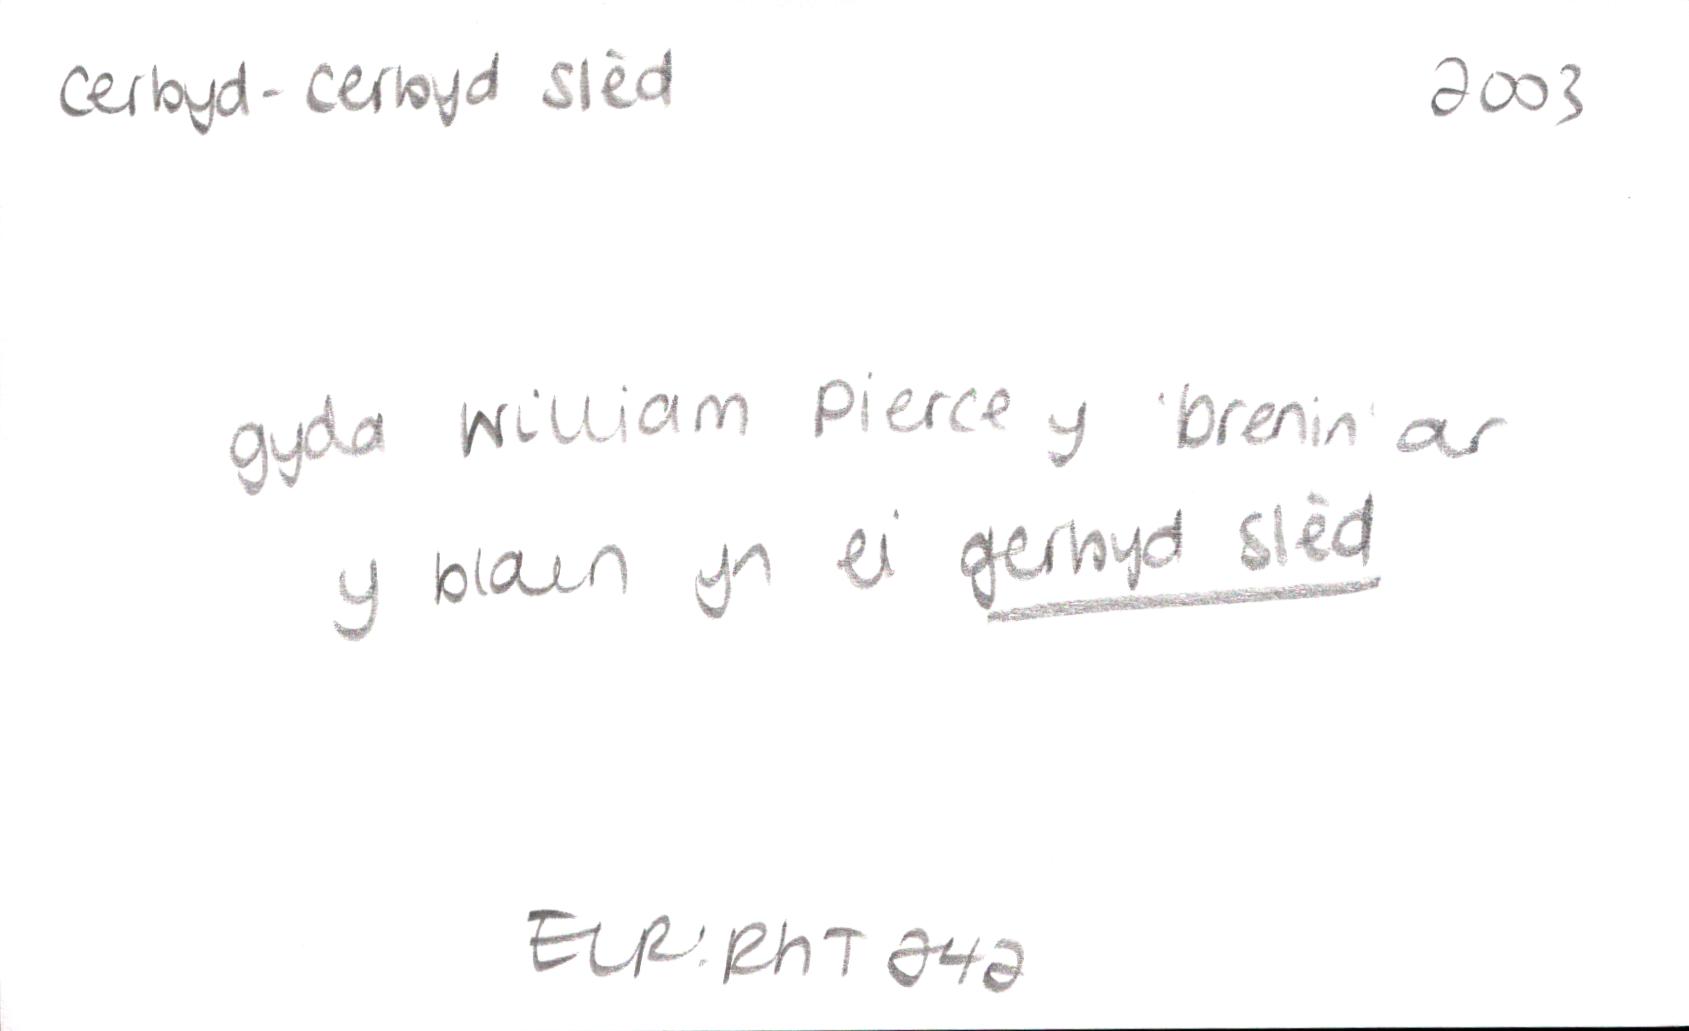 cerbyd - cerbyd slèd 2003
gyda William Pierce y 'brenin' ar
y blaen yn ei gerbyd slèd
ELR: RhT 242